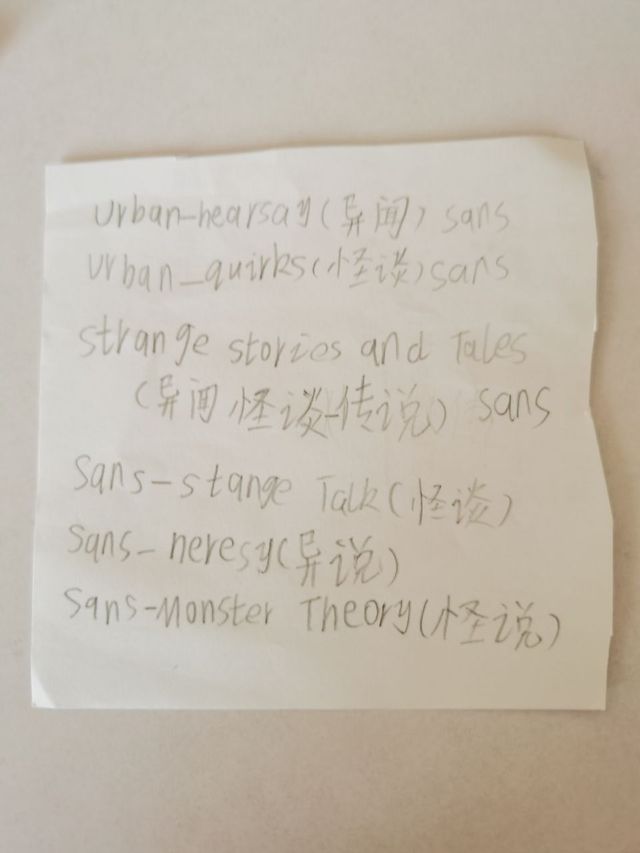 urban-hearsay(异闻) sans
urban_quirks(怪谈)sans
strange stories and Tales
(异闻怪谈-传说) sans
Sans-stange Talk(怪谈)
Sans-neresy(异说)
Sans-Monster Theory(怪说)